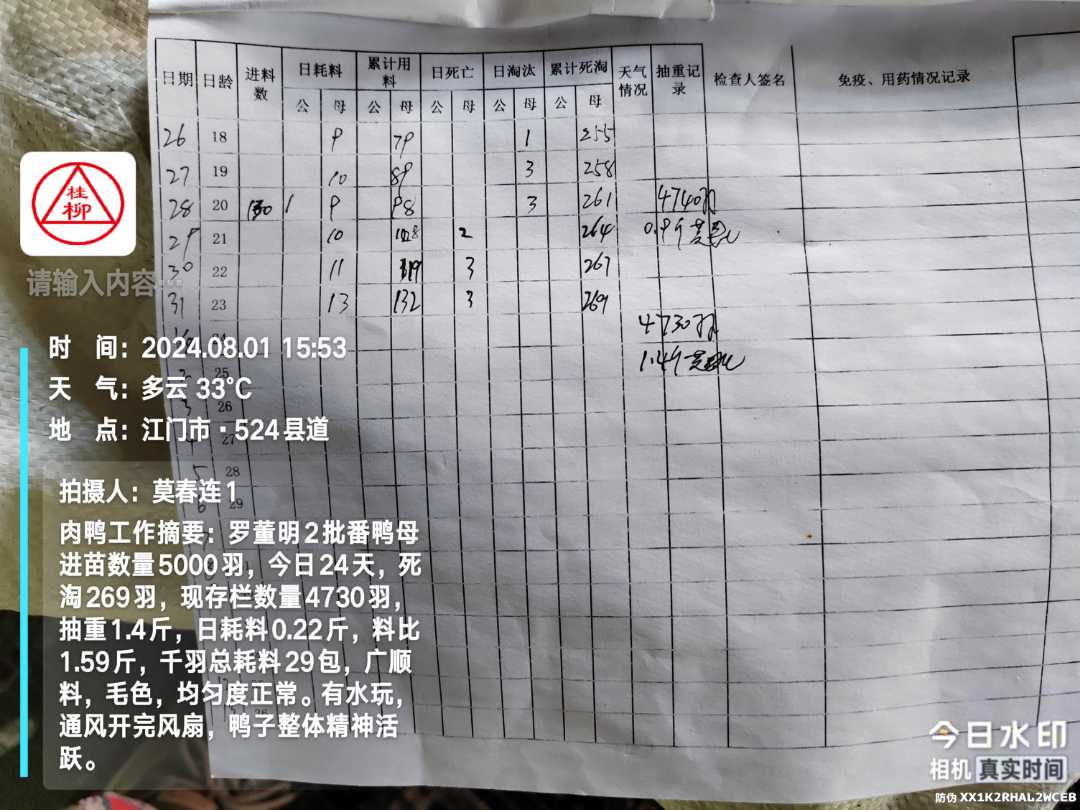 日期 日龄 进料数 日耗料 累计用料 日死亡 日淘汰 累计死淘 天气情况 抽重记录 检查人签名 免疫、用药情况记录
公 母 公 母 公 母 公 母 公 母
26 18 9 79 1 255
27 19 10 89 3 258
28 20 130 9 98 3 261 4740羽
29 21 10 108 2 264 0.9斤
30 22 11 119 3 267
31 23 13 132 3 269
4730羽
1.4斤
25
3 26
27
5 28
6 29
桂柳
请输入内容
时 间：2024.08.01 15:53
天 气：多云 33℃
地 点：江门市·524县道
拍摄人：莫春连1
肉鸭工作摘要：罗董明2批番鸭母
进苗数量5000羽，今日24天，死
淘269羽，现存栏数量4730羽，
抽重1.4斤，日耗料0.22斤，料比
1.59斤，千羽总耗料29包，广顺
料，毛色，均匀度正常。有水玩，
通风开完风扇，鸭子整体精神活
跃。
今日水印
相机 真实时间
防伪 XX1K2RHAL2WCEB